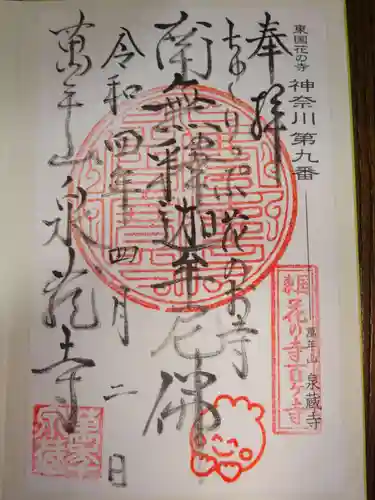 東国花の寺 神奈川 第九番
萬年山 泉蔵寺
奉拝
ちょくりっぷ花のお寺
南無釋迦牟尼佛
令和四年四月二日
萬年山泉蔵寺
東国花の寺百ヶ寺